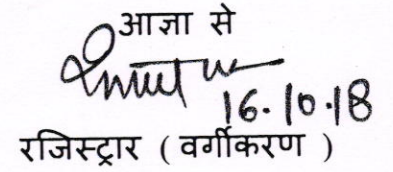 आज्ञा से
16.10.18
रजिस्ट्रार ( वर्गीकरण )